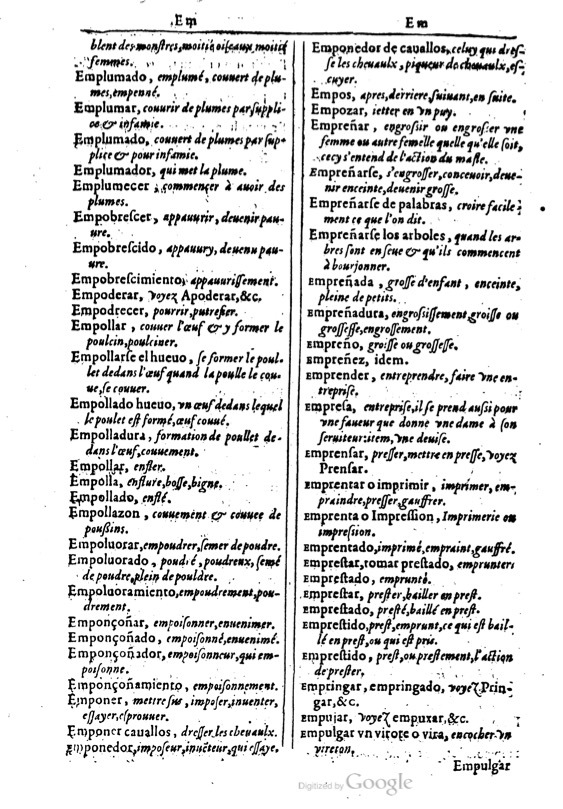 Em
blent des monstres, moitié oiseaux, moitié
femmes.
Emplumado, emplumé, couuert de plu-
mes, empenné.
Emplumar, couurir de plumes par suppli-
ce & infamie.
Emplumado, couuert de plumes par sup-
plice & pour infamie.
Emplumador, qui met la plume.
Emplumecer, commençer à auoir des
plumes.
Empobrescer, appauurir, deuenir pau-
ure.
Empobrescido, appauury, deuenu pau-
ure.
Empobrescimiento, appauurissement.
Empoderar, voyez Apoderar, &c.
Empodrecer, pourrir, putrefier.
Empollar, couuer l'œuf & y former le
poulcin, poulciner.
Empollarse el hueuo, se former le poul-
let dedans l'œuf quand la poulle le cou-
ue, se couuer.
Empollado hueuo, vn œuf dedans lequel
le poulet est formé, œuf couué.
Empolladura, formation de poullet de-
dans l'œuf, couuement.
Empollar, enfler.
Empolla, enflure, bosse, bigne.
Empollado, enflé.
Empollazon, couuement & couuee de
poussins.
Empoluorar, empoudrer, semer de poudre.
Empoluorado, poudré, poudreux, semé
de poudre, plein de pouldre.
Empoluoramiento, empoudrement, pou-
drement.
Emponçoñar, empoisonner, enuenimer.
Emponçoñado, empoisonné, enuenimé.
Emponçoñador, empoisonneur, qui em-
poisonne.
Emponçoñamiento, empoisonnement.
Emponer, mettre sus, imposer, inuenter,
essayer, esprouuer.
Emponer cauallos, dresser les cheuaulx.
Emponedor, imposeur, inuēteur, qui essaye.
Em
Emponedor de cauallos, celuy qui dres-
se les cheuaulx, piqueur de cheuaulx, es-
cuyer.
Empos, apres, derriere, suiuant, en suite.
Empozar, ietter en vn puy.
Empreñar, engrossir ou engrosser vne
femme ou autre femelle quelle qu'elle soit,
cecy s'entend de l'action du masle.
Empreñarse, s'engrosser, conceuoir, deue-
nir enceinte, deuenir grosse.
Empreñarse de palabras, croire facile-
ment ce que l'on dit.
Empreñarse los arboles, quand les ar-
bres sont en seue & qu'ils commencent
à bourjonner.
Empreñada, grosse d'enfant, enceinte,
pleine de petits.
Empreñadura, engrossissement, groisse ou
grossesse, engrossement.
Empreño, groisse ou grossesse.
Empreñez, idem.
Emprender, entreprendre, faire vne en-
treprise.
Empresa, entreprise, il se prend aussi pour
vne faueur que donne vne dame à son
seruiteur: item, vne deuise.
Emprensar, presser, mettre en presse, voyez
Prensar.
Emprentar o imprimir, imprimer, em-
praindre, presser, gauffrer.
Emprenta o Impression, Imprimerie ou
impression.
Emprentado, imprimé, empraint, gauffré.
Emprestar, tomar prestado, emprunter.
Emprestado, emprunté.
Emprestar, prester, bailler en prest.
Emprestado, presté, baillé en prest.
Emprestido, prest, emprunt, ce qui est bail-
lé en prest, ou qui est pris.
Emprestido, prest, ou prestement, l'action
de prester.
Empringar, empringado, voyez Prin-
gar, &c.
Empujar, voyez empuxar, &c.
Empulgar vn virote o vira, encocher vn
vireton.
Empulgar
Digitized by Google